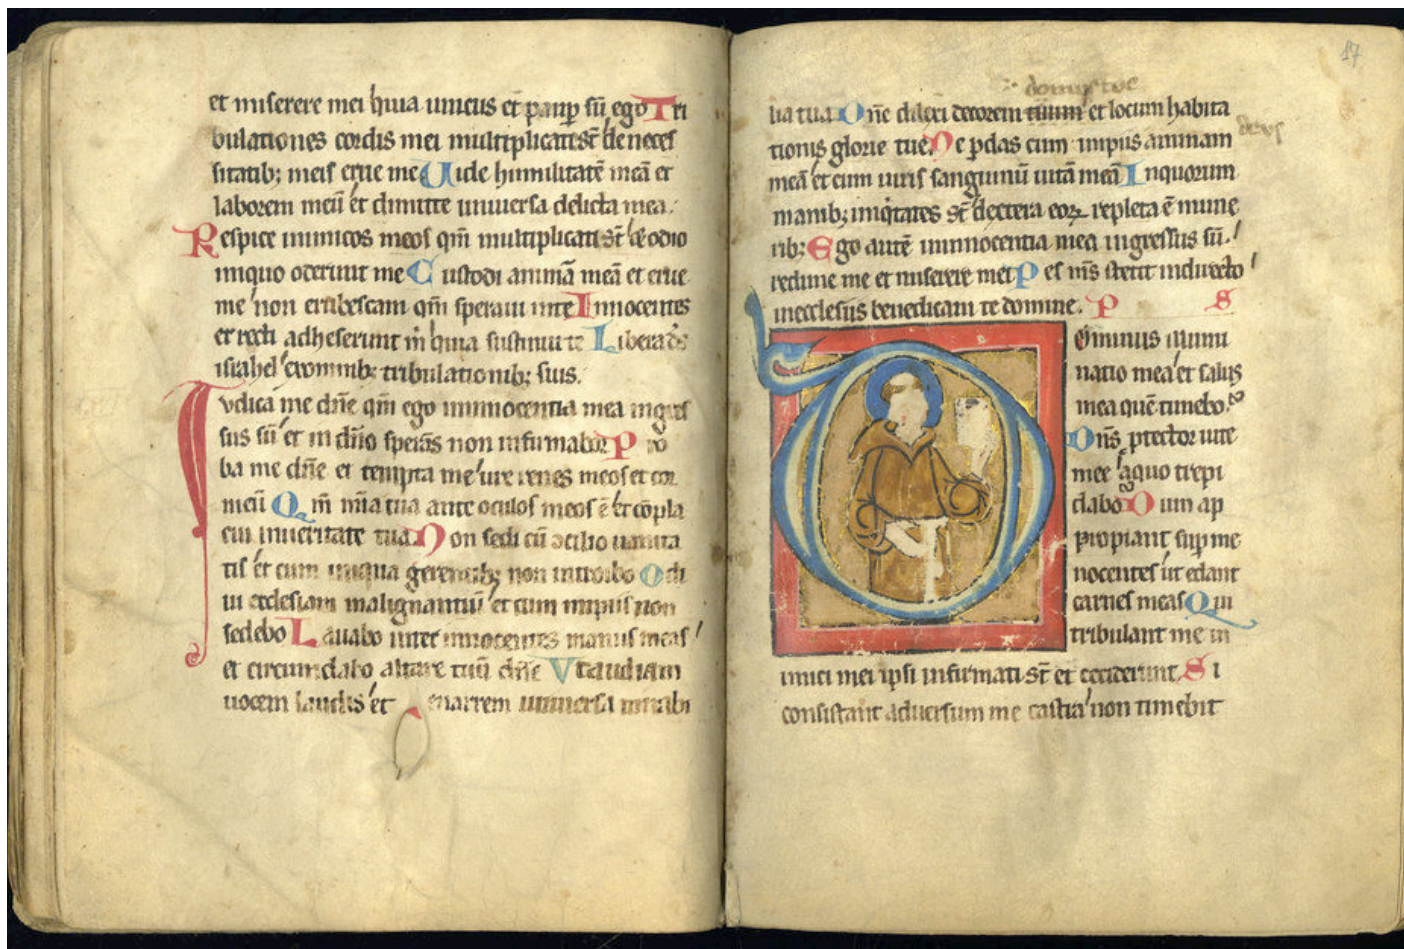 et miserere mei quia unicus et paup sū ego Tri
bulationes cordis mei multiplicate st̄ de neces
sitatib; meis erue me Uide humilitatē meā et
laborem meū et dimitte uniuersa delicta mea.
Respice inimicos meos qm̄ multiplicati st̄ et odio
iniquo oderunt me Custodi animā meā et erue
me non erubescam qm̄ speraui in te Innocentes
et recti adheserunt m̄ quia sustinui te Libera ds̄
israhel ex omnib; tribulationib; suis.
Iudica me dn̄e qm̄ ego in innocentia mea ingres
sus sū et in dn̄o sperās non infirmabor Pro
ba me dn̄e et tempta me ure renes meos et cor
meū Qm̄ mīa tua ante oculos meos ē et cōpla
cui in ueritate tua Non sedi cū
tis et cum iniqua gerentib; non introibo Odi
ui ecclesiam malignantiū et cum impiis non
sedebo Lauabo inter innocentes manus meas
et circumdabo altare tuū dn̄e Ut audiam
uocem laudis et enarrem uniuersa mirabi
17
domus tue
lia tua Dn̄e dilexi decorem tuum et locum habita
tionis glorie tue Ne pdas cum impiis animam
deus
meā et cum uiris sanguinū uitā meā In quorum
manib; iniqtates st̄ dextera eoꝝ repleta ē mune
rib; Ego autē in innocentia mea ingressus sū
redime me et miserere mei Pes ms̄ stetit in directo
in ecclesiis benedicam te domine. P S
Ominus illumi
natio mea et salus
mea quē timebo
Dn̄s ptector uite
mee a quo trepi
dabo Dum ap
propiant sup me
nocentes ut edant
carnes meas Qui
tribulant me in
imici mei ipsi infirmati st̄ et ceciderunt Si
consistant aduersum me castra non timebit